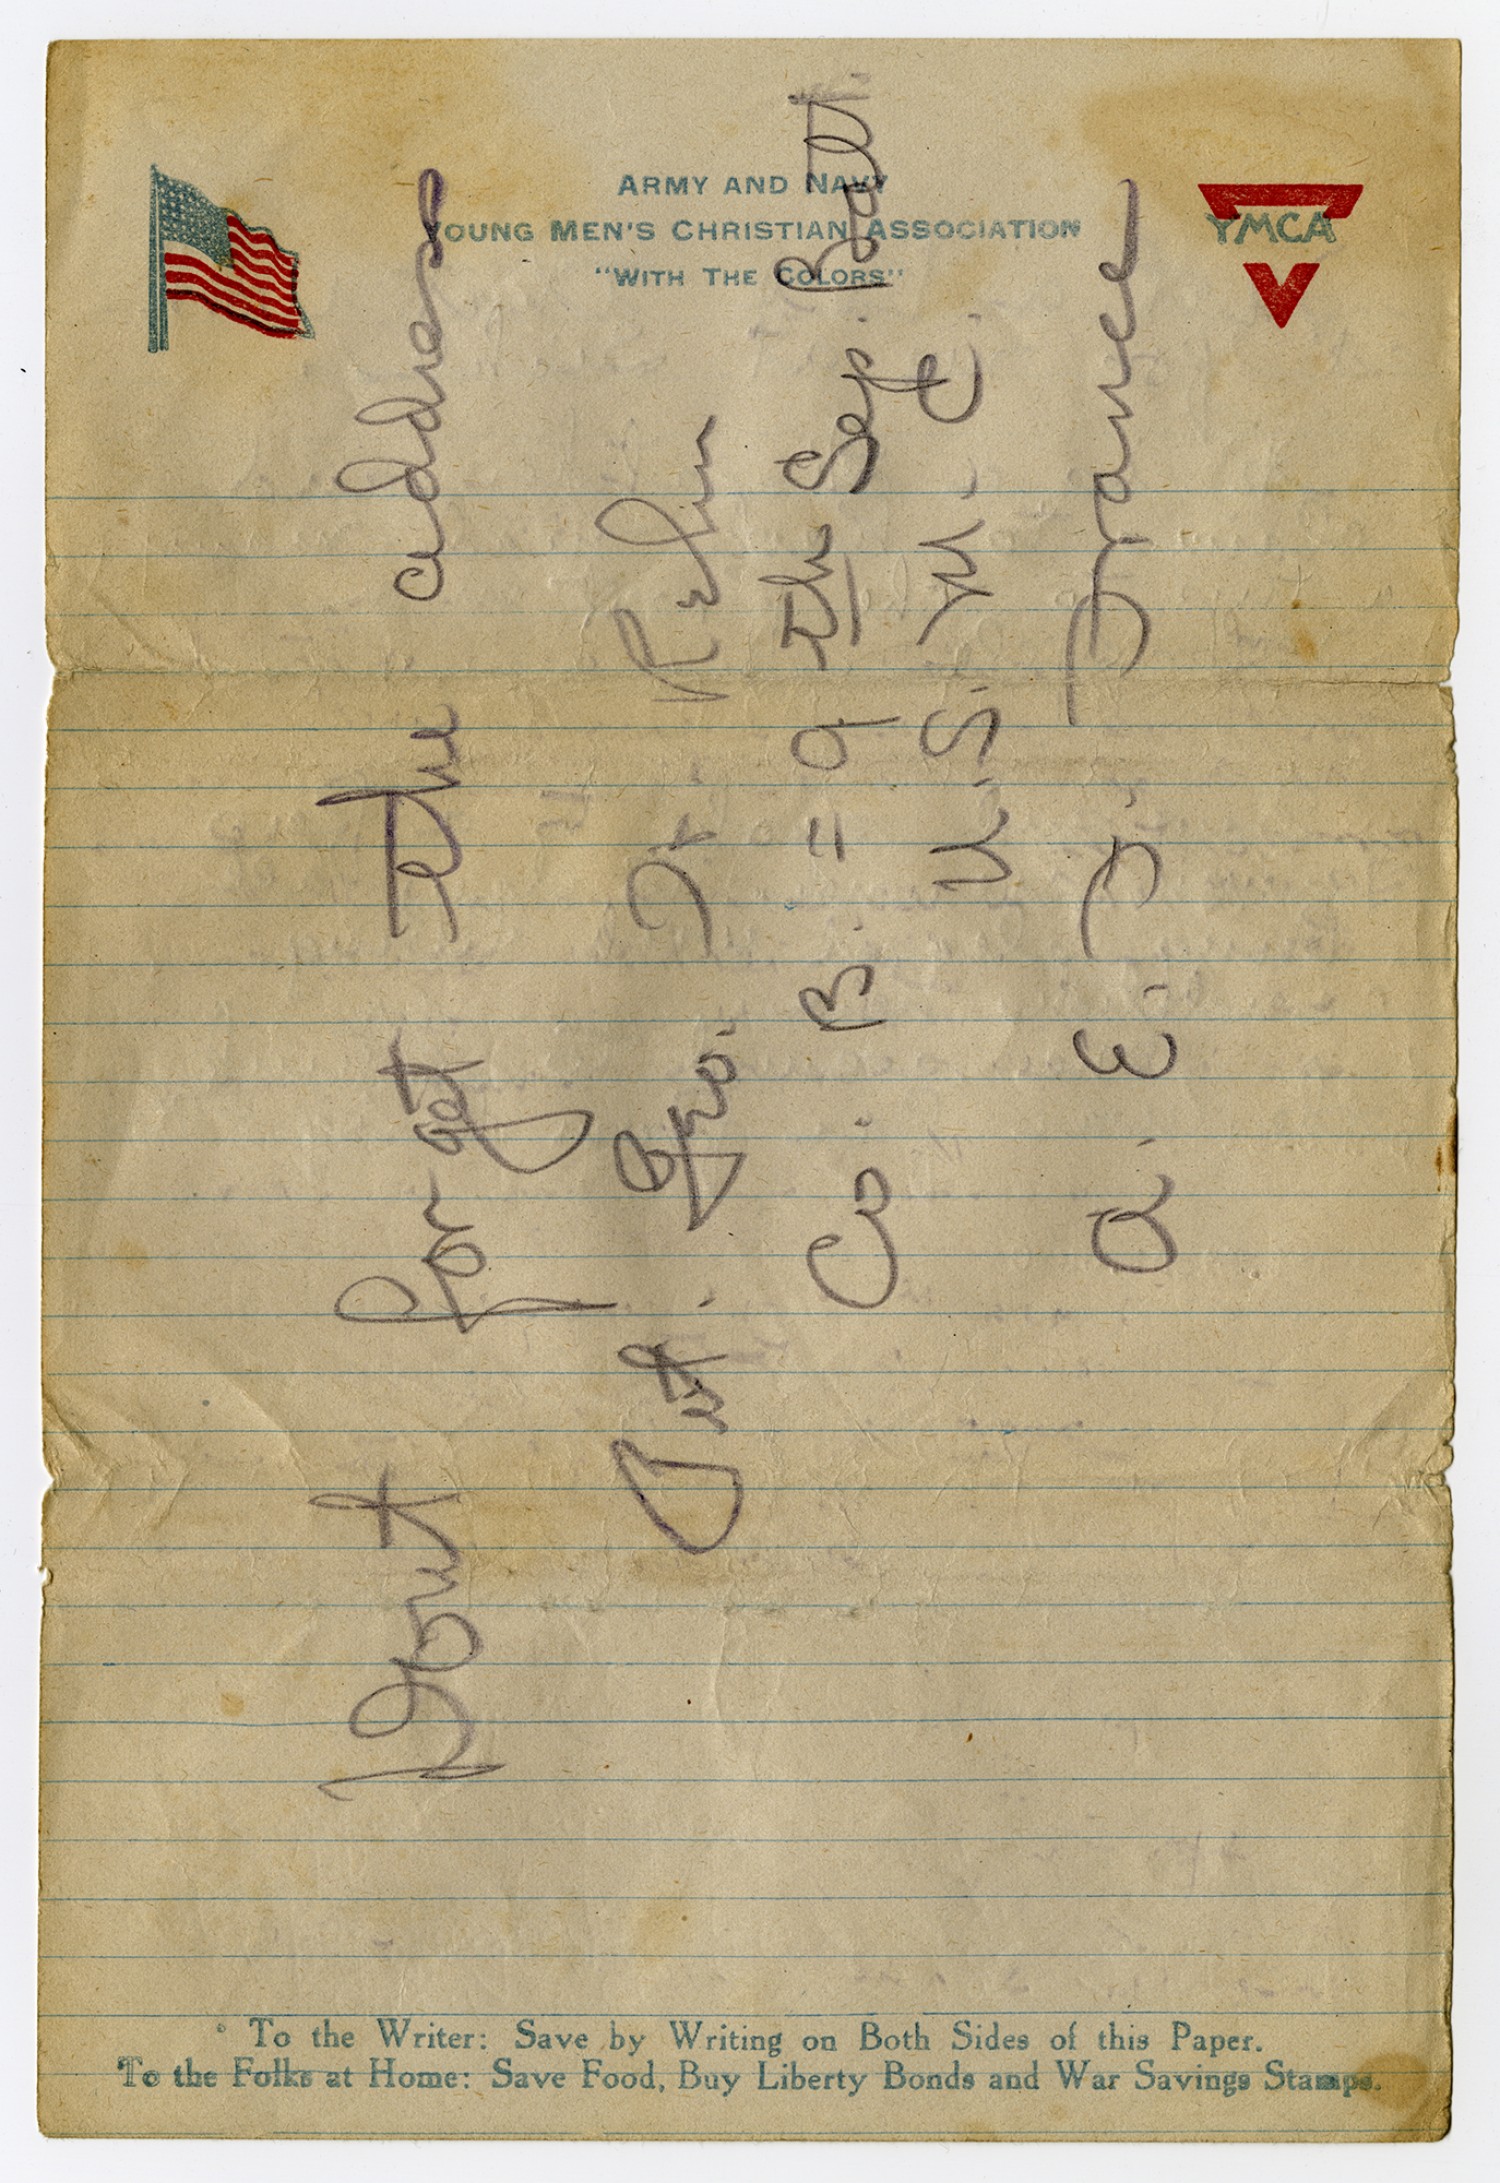 ARMY AND NAVY
YOUNG MEN'S CHRISTIAN ASSOCIATION
"WITH THE COLORS"
YMCA
Dont forget the address
Pvt. Geo. F. Kelm
Co. B. = 9 th Sep. Batt.
U.S. M. C.
A. E. F. France
To the Writer: Save by Writing on Both Sides of this Paper.
To the Folks at Home: Save Food, Buy Liberty Bonds and War Savings Stamps.